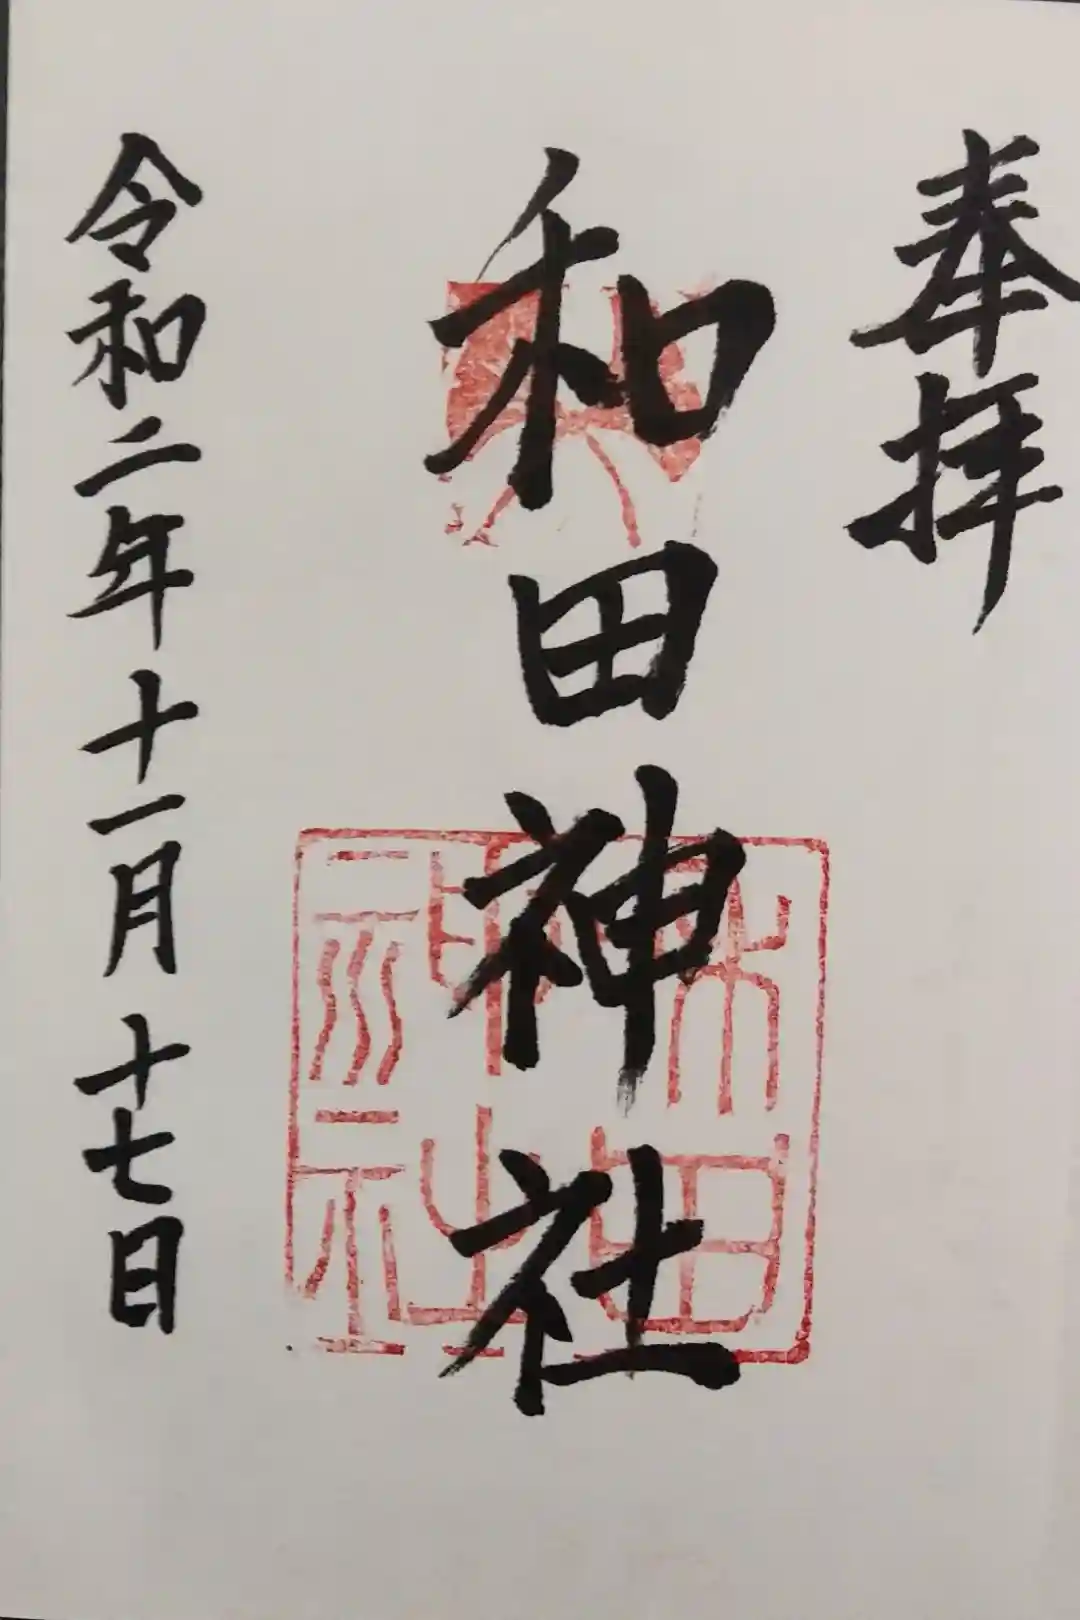 奉拝
和田神社
令和二年十一月十七日
和田
神社